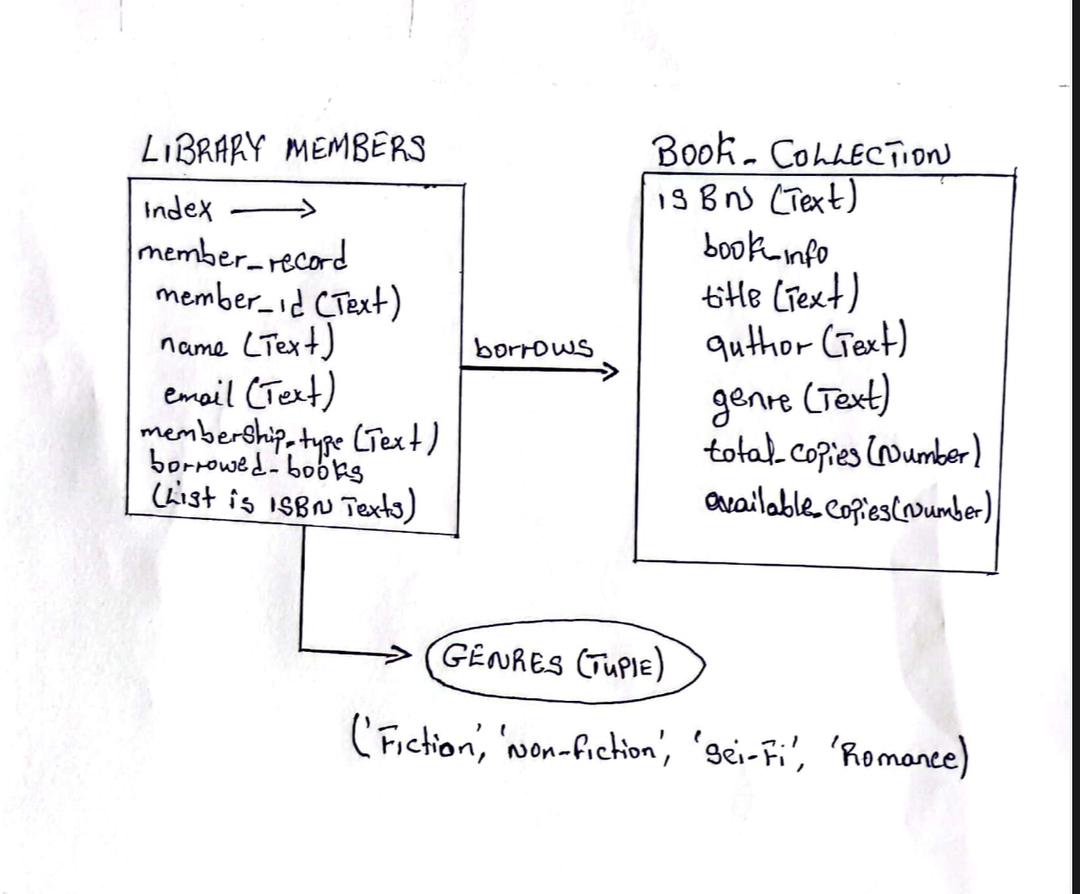 LIBRARY MEMBERS
index
member_record
member_id (Text)
name (Text)
email (Text)
membership_type (Text)
borrowed_books
(List is ISBN Texts)
borrows
BOOK_COLLECTION
ISBN (Text)
book_info
title (Text)
author (Text)
genre (Text)
total_copies (Number)
available_copies (Number)
GENRES (TUPLE)
('Fiction', 'Non-fiction', 'Sci-Fi', 'Romance)